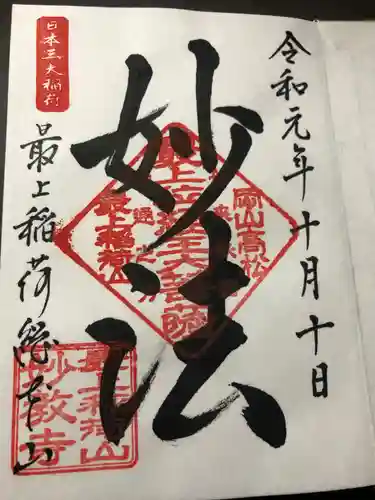 令和元年十月十日
日本三大稲荷
妙法
最上稲荷総本山
岡山高松
最上稲荷山
最上稲荷山
妙教寺